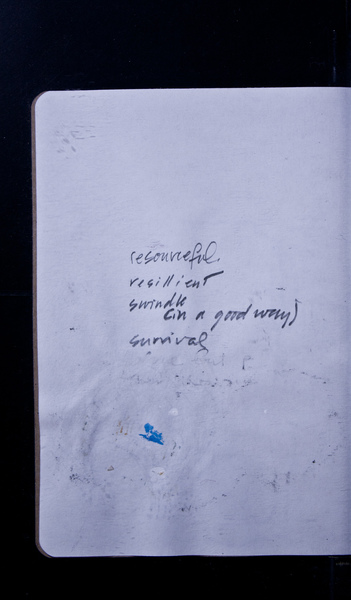 resourceful.
resillient
swindle
(in a good way)
survival